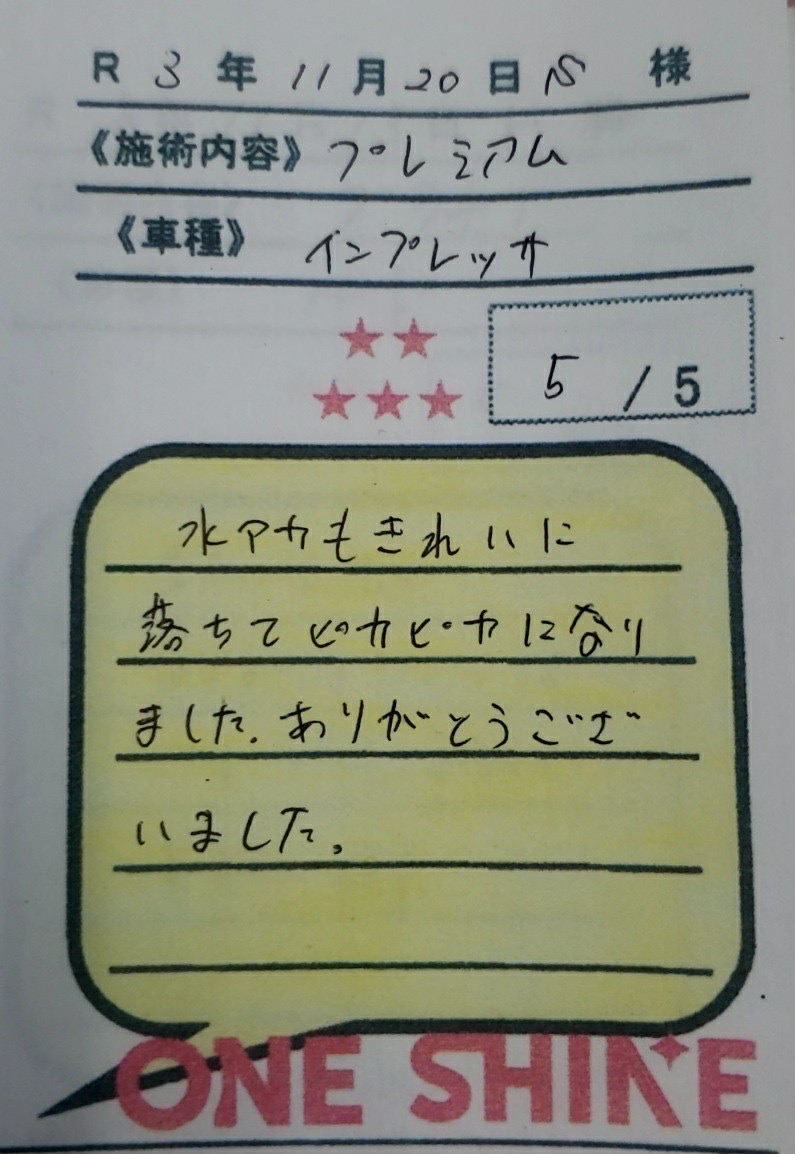 R 3 年 11 月 20 日 S 様
《施術内容》 プレミアム
《車種》 インプレッサ
★★
★★★
5 / 5
水アカもきれいに
落ちてピカピカになり
ました。ありがとうござ
いました。
ONE SHINE